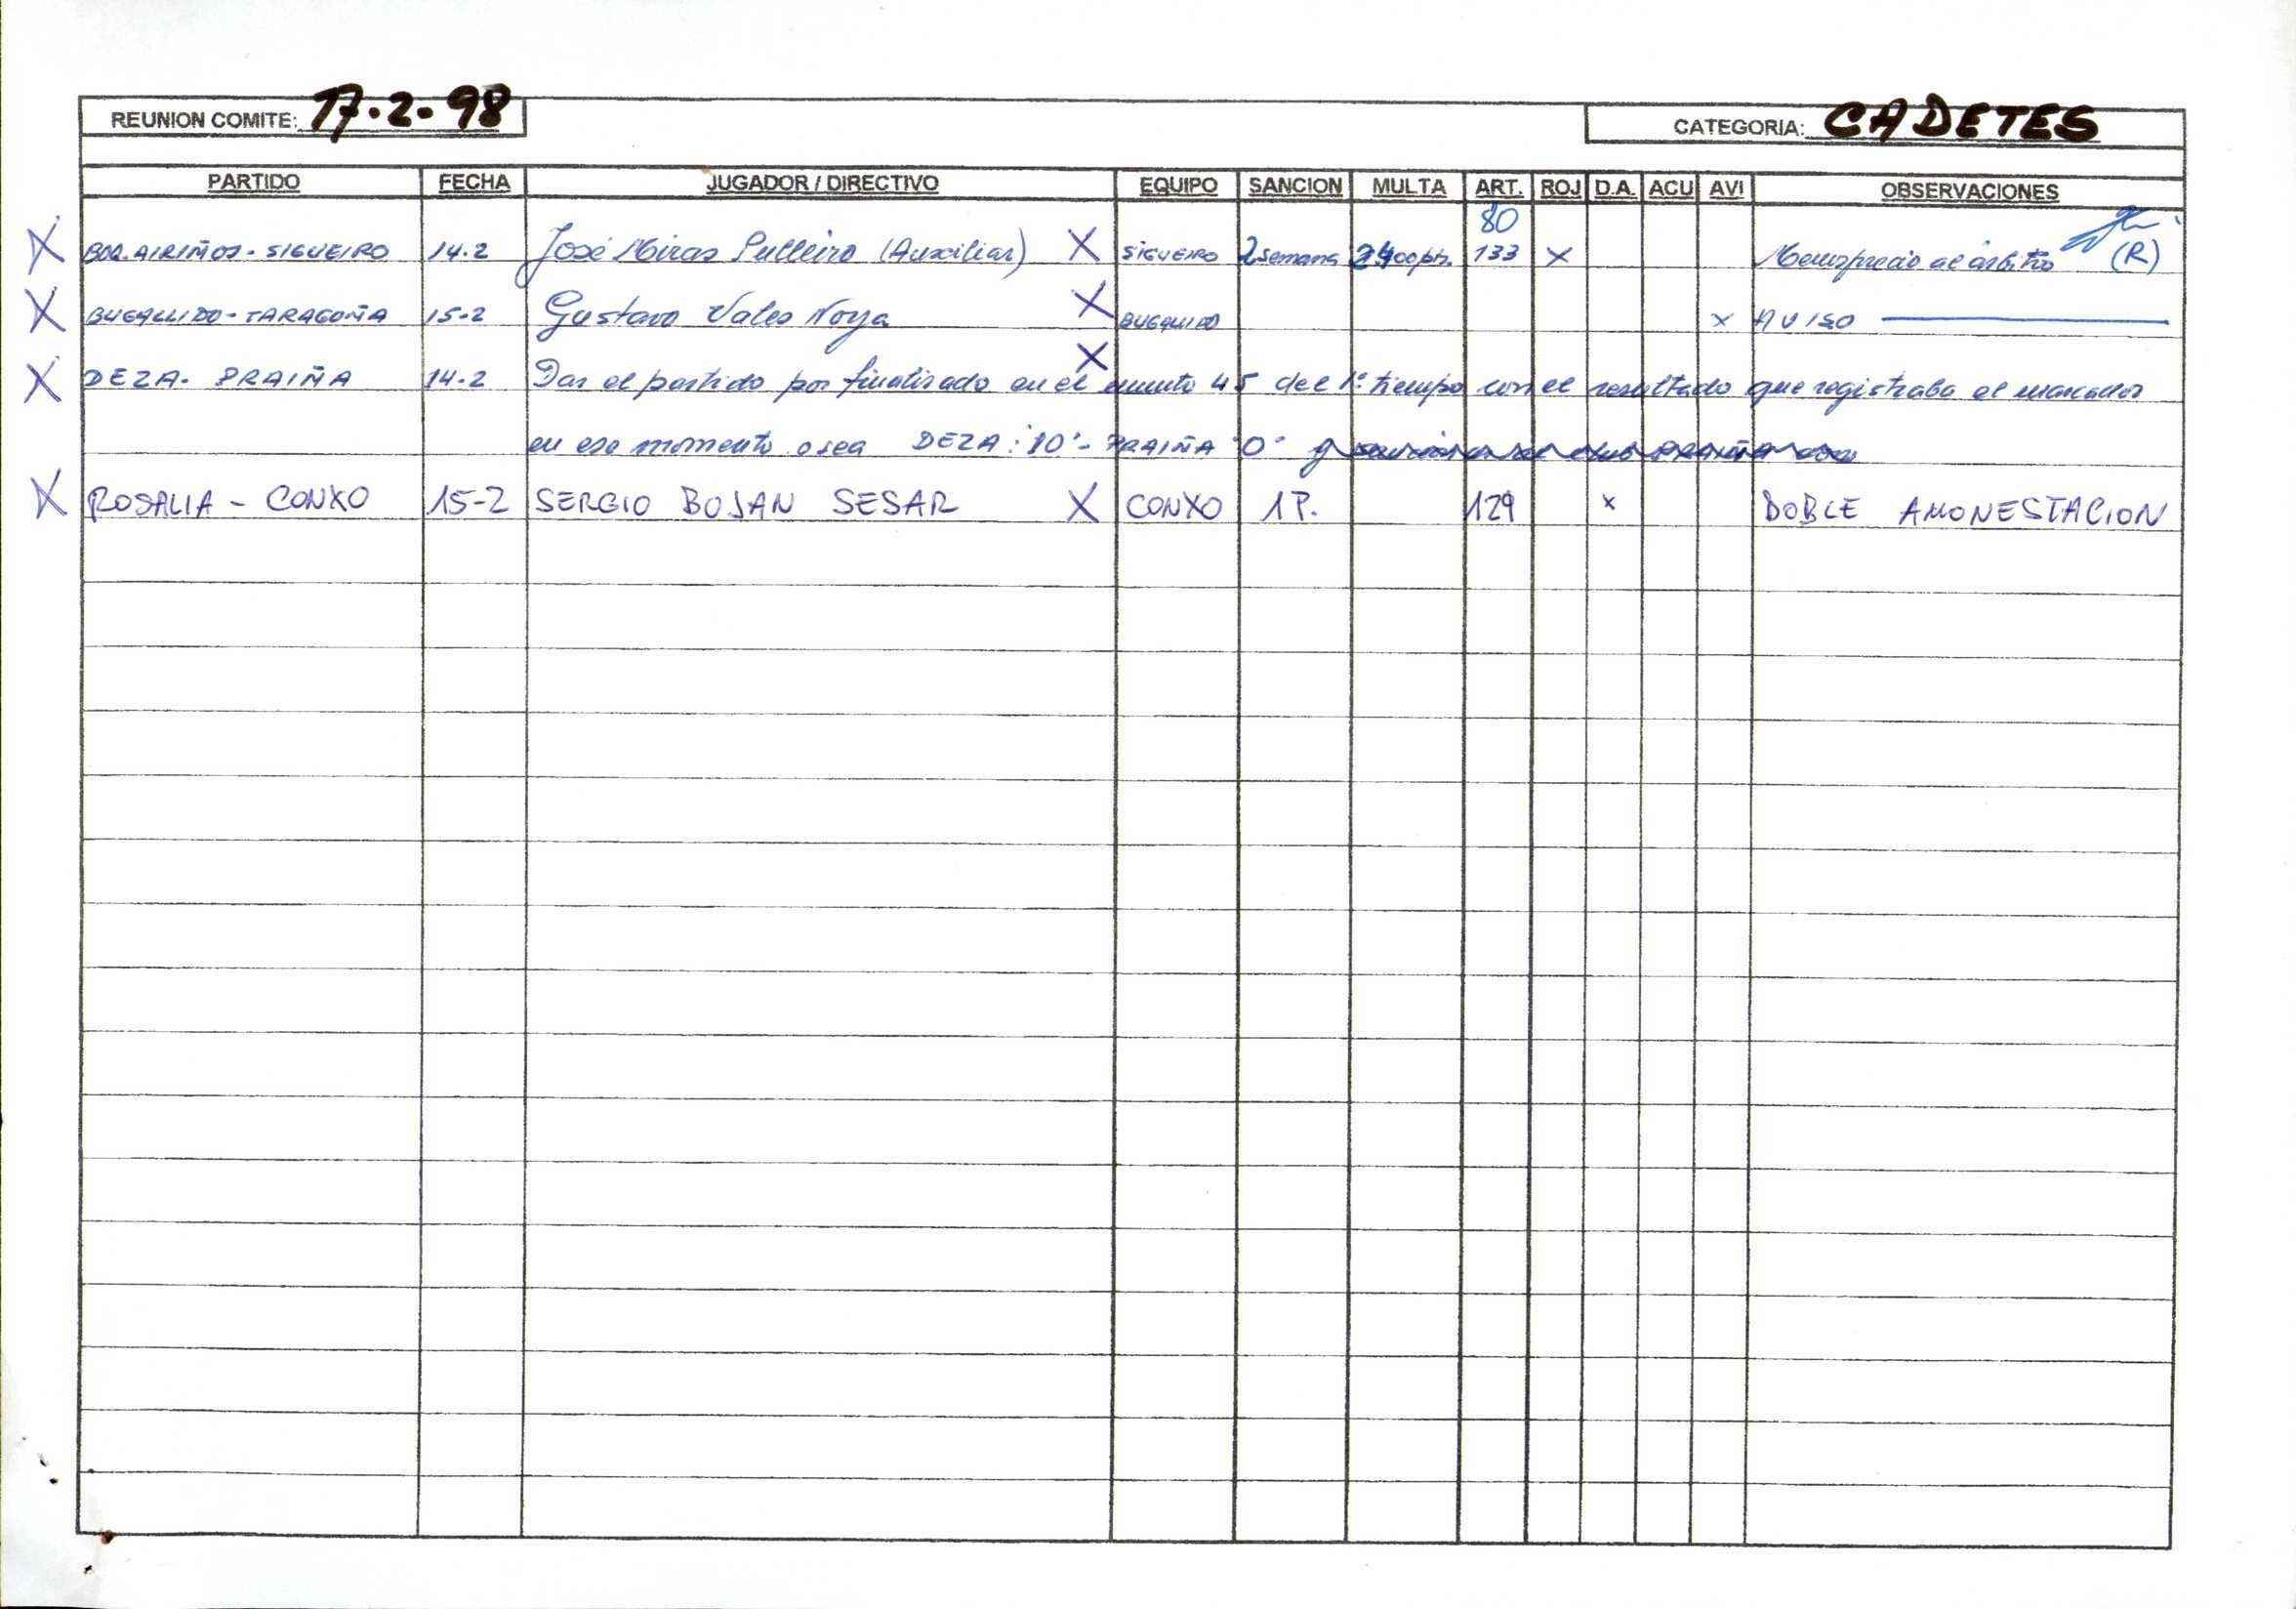 REUNION COMITE: 17-2-98 CATEGORIA: CADETES
PARTIDO FECHA JUGADOR / DIRECTIVO EQUIPO SANCION MULTA ART. ROJ D.A. ACU AVI OBSERVACIONES
80
X BOR. AIRIÑOS - SIGUEIRO 14.2 José Miras Pulleiro (Auxiliar) X SIGUEIRO 2 semana 2400 pts. 133 X Menosprecio al árbitro (R)
X BUGALLIDO - TARAGOÑA 15-2 Gustavo Vales Noya X BUGALLIDO X AVISO
X DEZA - PRAIÑA 14-2 Dar el partido por finalizado en el X minuto 45 del 1º tiempo con el resultado que registraba el marcador
en ese momento o sea DEZA: 10 - PRAIÑA 0 y
X ROSALIA - CONXO 15-2 SERGIO BOJAN SESAR X CONXO 1P. 129 X DOBLE AMONESTACION